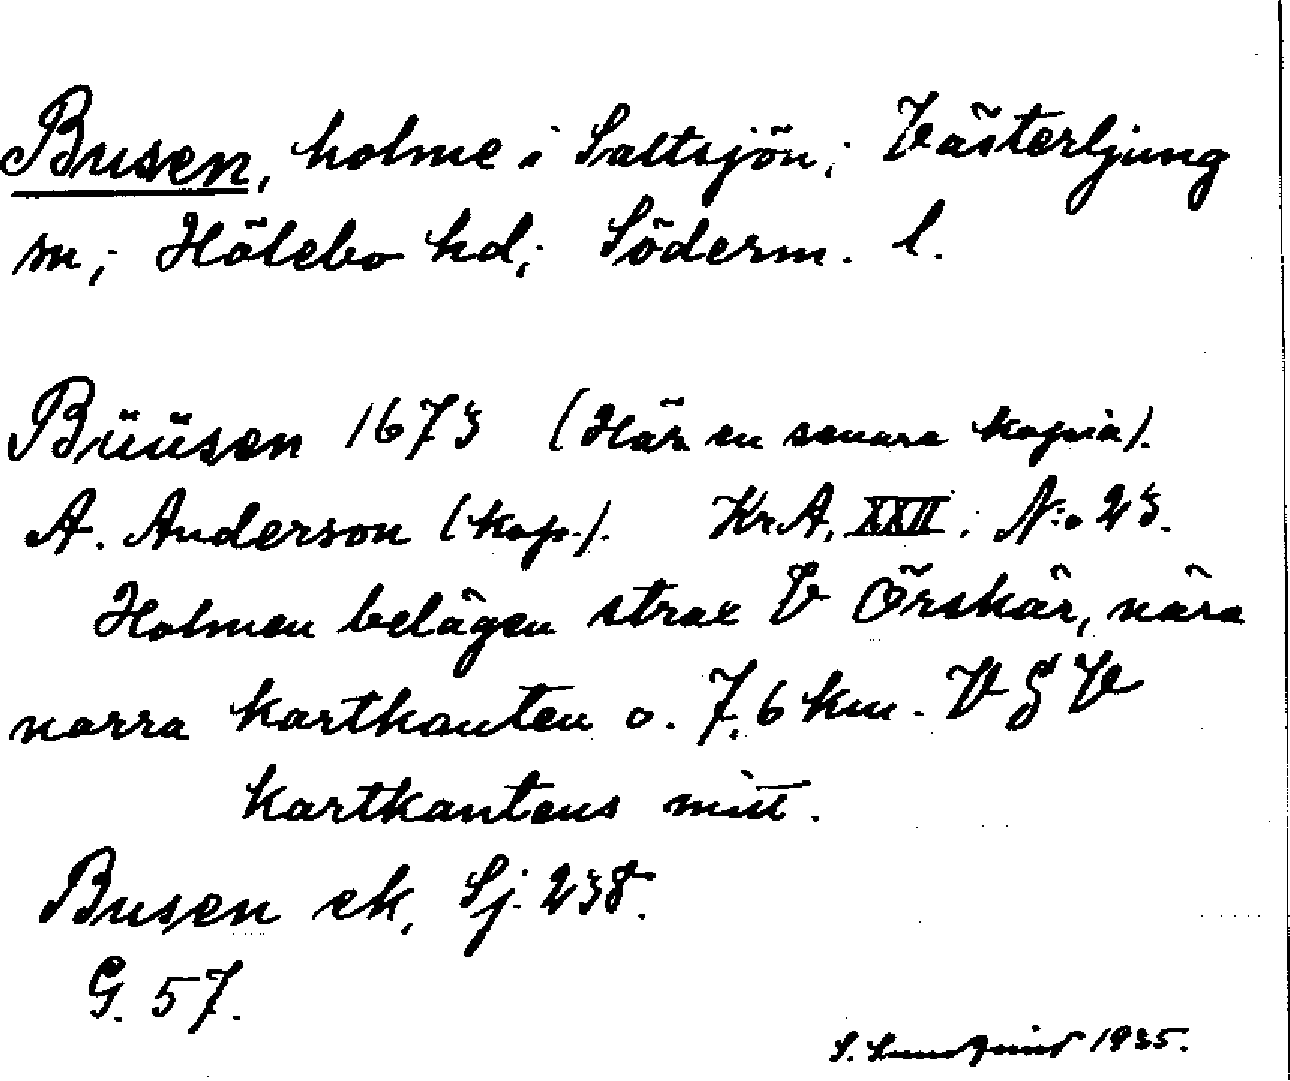 Busen, holme i Saltsjön; Västerljung
sn; Hölebo hd; Söderm. l.
Büüsen 1673 (Här en senare kopia).
A. Anderson (kop.). Kr.A. XXII: N:o 23.
Holmen belägen strax V Örskär, nära
norra kartkanten o. 7,6 km. V g V
kartkantens mitt.
Busen ek, Sj. 238.
G. 57.
S. Sundqvist 1935.